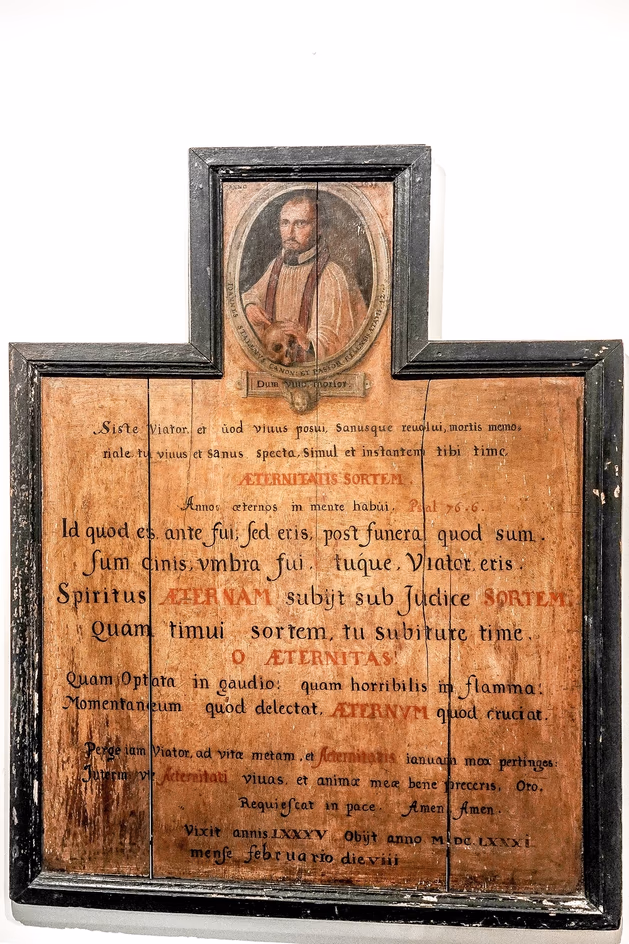 ANNO
Dum vivo, morior
Siste Viator, et quod vivus posui, Sanusque revolui, mortis memo=
riale tu vivus et sanus specta, Simul et instantem tibi time.
ÆTERNITATIS SORTEM.
Annos æternos in mente habui. Psal 76.6.
Id quod es, ante fui, sed eris, post funera, quod sum.
sum cinis, vmbra fui, tuque, Viator, eris.
Spiritus ÆTERNAM subijt sub Judice SORTEM.
Quam timui sortem, tu subiture time.
O ÆTERNITAS!
Quam Optata in gaudio: quam horribilis in flamma:
Momentaneum quod delectat, ÆTERNVM quod cruciat.
Perge iam Viator, ad vitæ metam, et Æternitatis ianuam mox pertinges:
Interim Æternitati vivas, et animæ meæ bene preceris, Oro.
Requiescat in pace. Amen, Amen.
Vixit annis LXXXV Obijt anno M.DC.LXXXI.
mense februario die viii